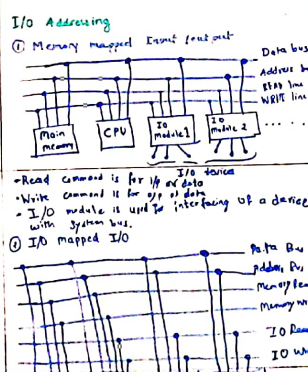 I/O Addressing
① Memory mapped Input /output
Data bus
Address b
READ line
WRITE line
Main memory
CPU
IO module 1
IO module 2
I/O device
• Read command is for i/p of data
• Write command is for o/p of data
• I/O module is used for interfacing of a device
with system bus.
② I/O mapped I/O
Data Bus
Address Bus
Memory Rea
Memory Wr
IO Rea
IO W